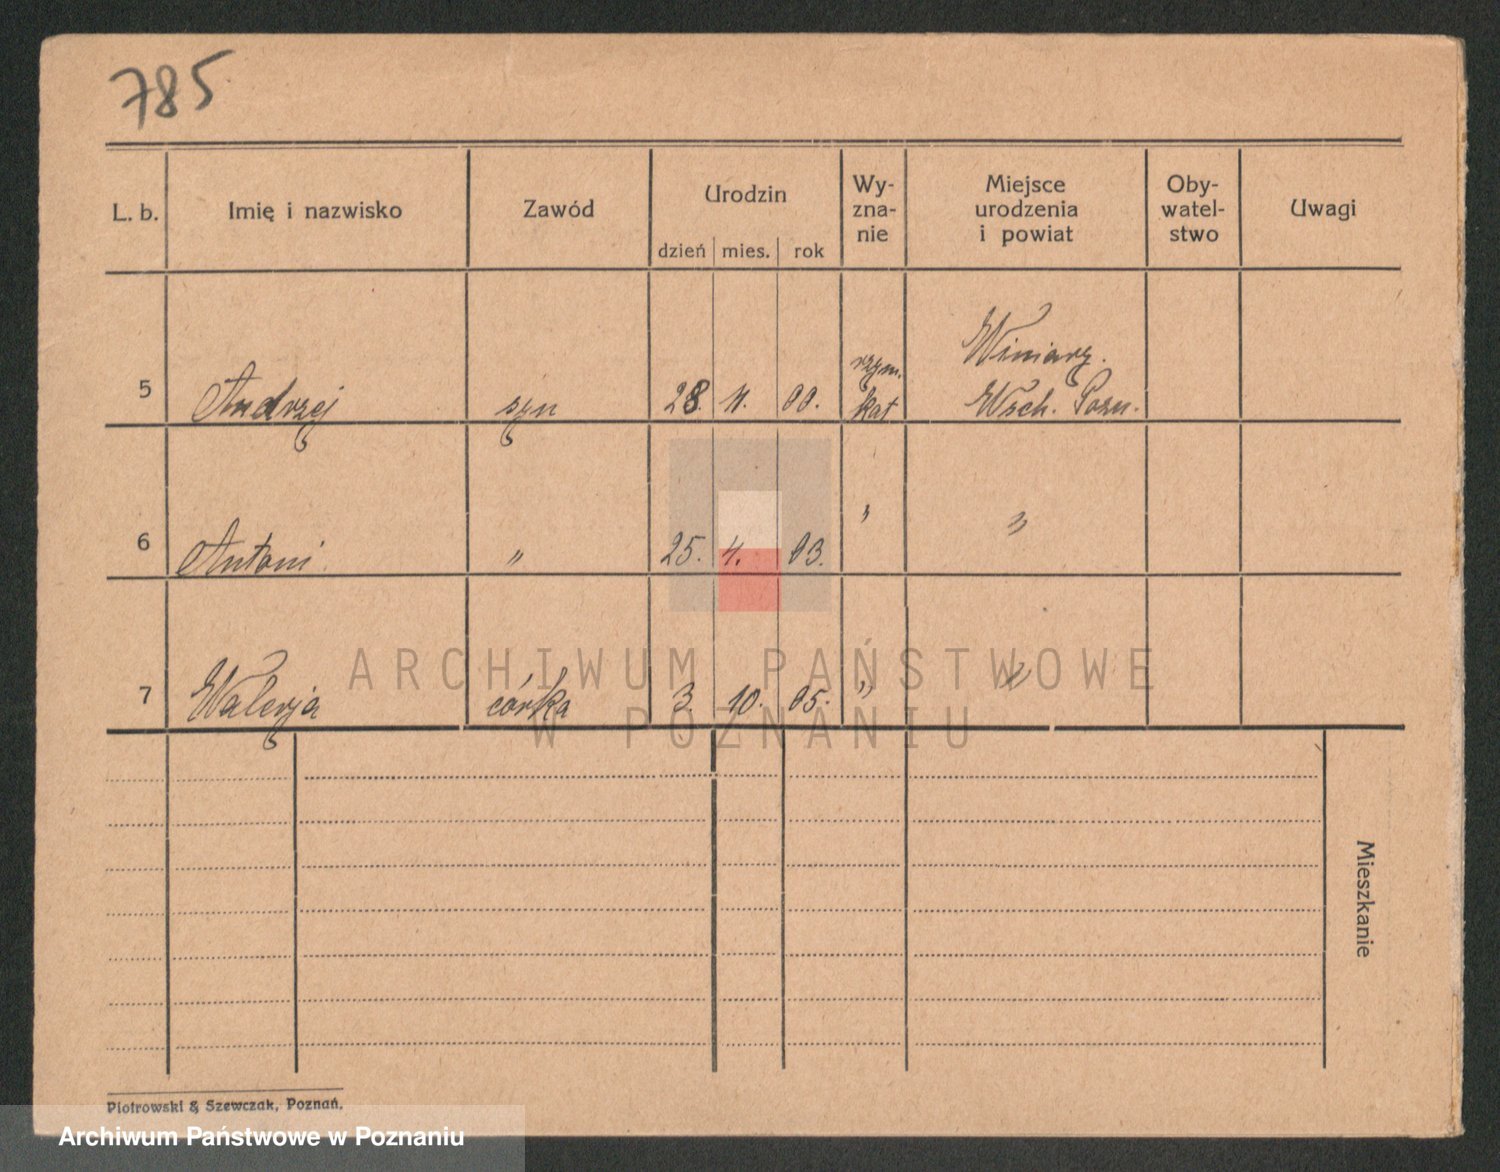 785
L. b. Imię i nazwisko Zawód Urodzin dzień mies. rok Wy-zna-nie Miejsce urodzenia i powiat Oby-watel-stwo Uwagi
5 Andrzej syn 28. 11. 00. rzym. kat Winiary. Wsch. Pozn.
6 Antoni. " 25. 4. 03. " "
7 Walerja córka 3. 10. 05. " "
ARCHIWUM PAŃSTWOWE
W POZNANIU
Mieszkanie
Piotrowski & Szewczak, Poznań.
Archiwum Państwowe w Poznaniu